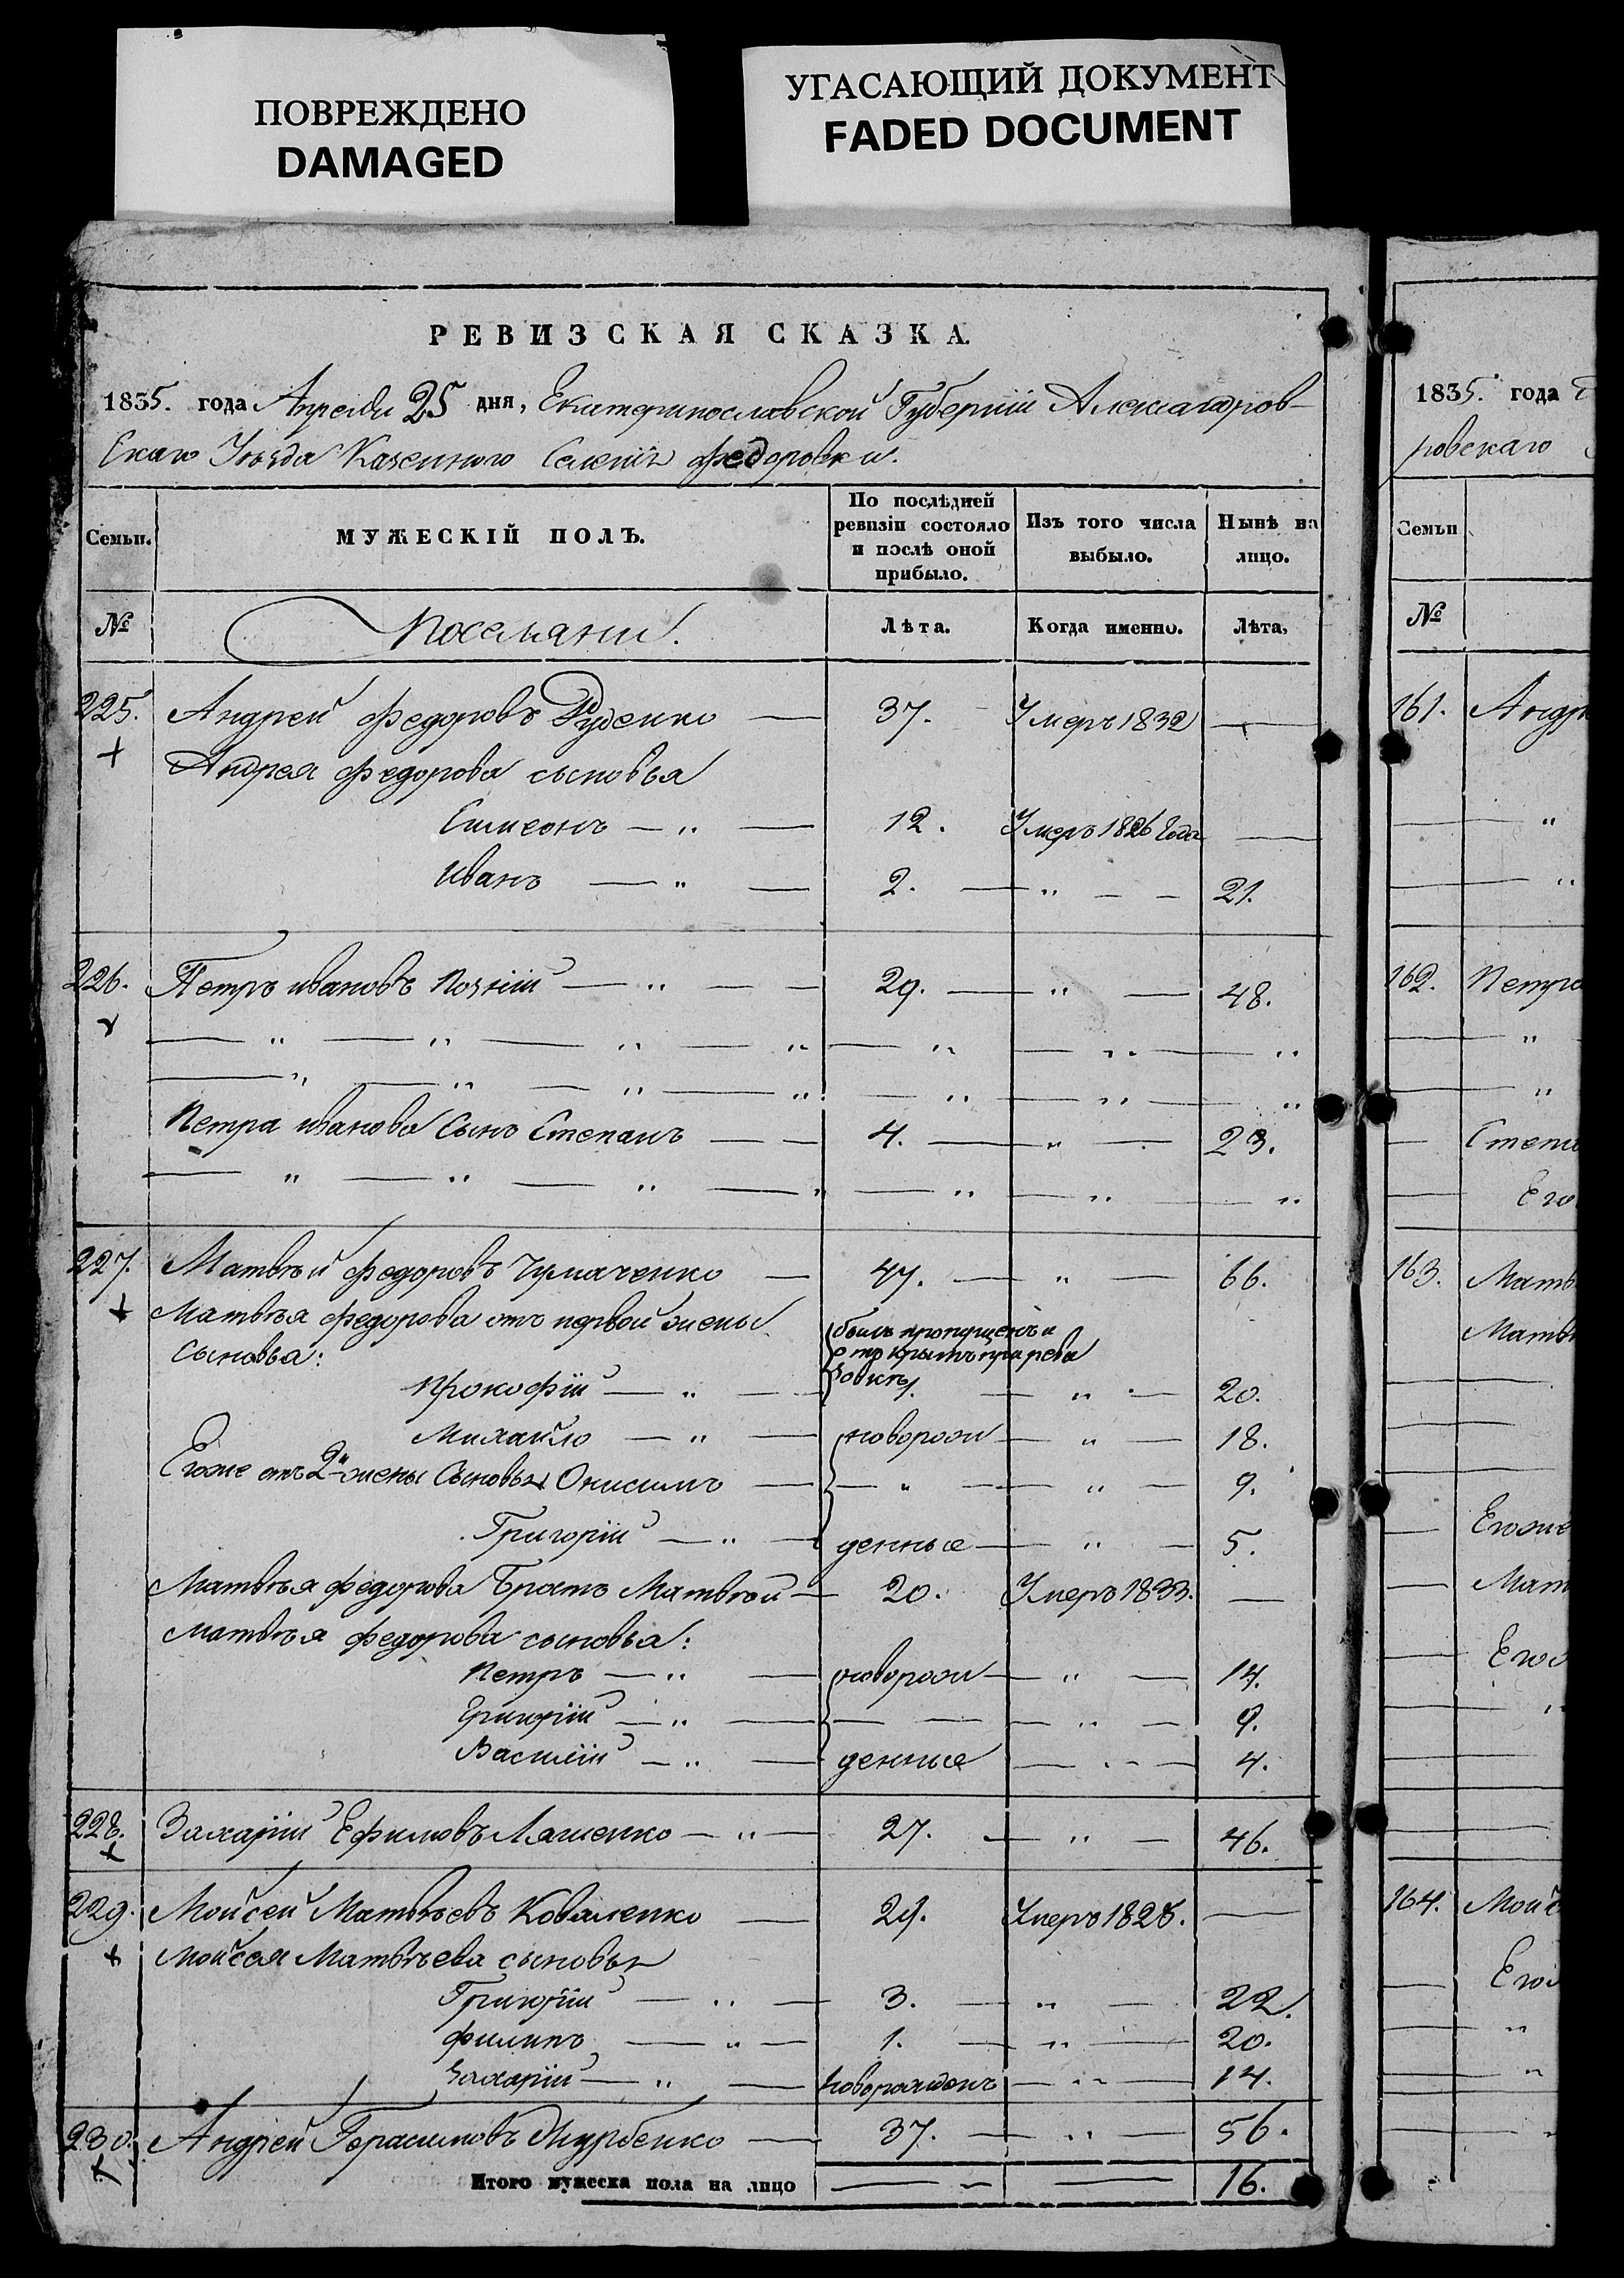 ПОВРЕЖДЕНО
DAMAGED
УГАСАЮЩИЙ ДОКУМЕНТ
FADED DOCUMENT
РЕВИЗСКАЯ СКАЗКА.
1835. года Апреля 25 дня, Екатеринославской Губернiи Александров-
скаго Уѣзда Казенного Селенiя Федоровки.
Семьи. МУЖЕСКIЙ ПОЛЪ. По послѣдней ревизiи состояло и послѣ оной прибыло. Изъ того числа выбыло. Нынѣ на лицо.
№ Поселяни. Лѣта. Когда именно. Лѣта.
225. Андрей Федоровъ Руденко — 37. Умеръ 1832 —
Андрея Федорова сыновья
Симеонъ — „ — 12. Умеръ 1826 года —
Иванъ — „ — 2. — „ — — 21.
226. Петръ Ивановъ Познiй — „ — — 29. — „ — 48.
— „ — „ — „ — „ — „ — „ — „
— „ — „ — „ — „ — „ — „ — „
Петра Иванова Сынъ Степанъ — — 4. — „ — 23.
— „ — „ — „ — „ — „ — „ — „
227. Матвѣй Федоровъ Чумаченко — 47. — „ — 66.
Матвѣя Федорова отъ первой жены
Сыновья: былъ пропущенъ и
Прокофiй — „ — 1. — „ — 20.
Михайло — „ — новорож — „ — 18.
Егоже отъ 2й жены Сыновья Онисимъ — — „ — „ — 9.
Григорiй — „ — денные — „ — 5.
Матвѣя Федорова Братъ Матвѣй — 20. Умеръ 1833. —
Матвѣя Федорова сыновья:
Петръ — „ — новорож — „ — 14.
Григорiй — „ — — — — „ — 9.
Василiй — „ — денные — „ — 4.
228. Захарiй Ефимовъ Ляшенко — „ — 27. — „ — 46.
229. Мойсей Матвѣевъ Коваленко — 29. Умеръ 1828. —
Мойсея Матвѣева сыновья
Григорiй — „ — 3. — „ — 22.
Филипъ — „ — 1. — „ — 20.
Захарiй — „ — новорожденъ — „ — 14.
230. Андрей Герасимовъ — 37. — „ — 56.
Итого мужеска пола на лицо — — — 16.
1835. года
ровскаго
Семьи
№
161. Андр
„
„
162. Петр
„
„
Степа
Его
163. Матв
Матв
Егоже
Мат
Его
164. Мойс
Его
„
„